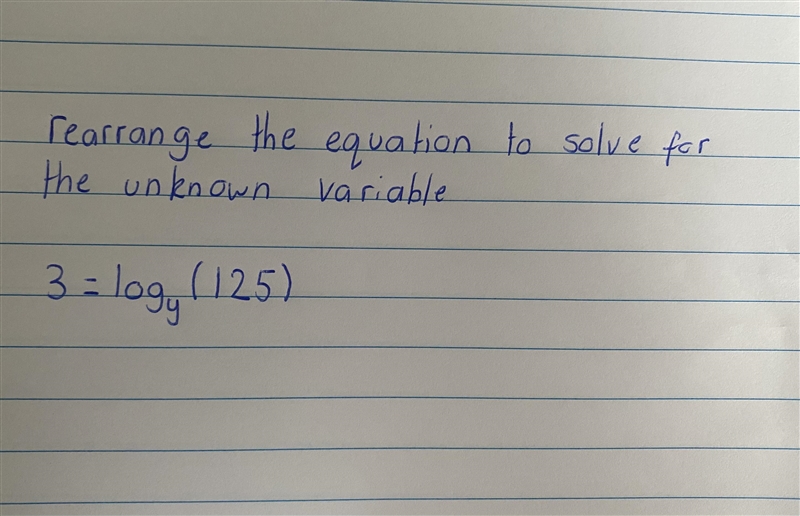 rearrange the equation to solve for
the unknown variable
3 = log_y (125)